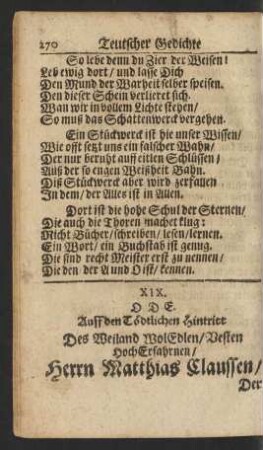 270 Teutscher Gedichte
So lebe denn du Zier der Weisen!
Leb ewig dort/ und lasse Dich
Den Mund der Warheit selber speisen.
Den dieser Schein verlieret sich.
Wan wir in vollem Lichte stehen/
So muß das Schattenwerck vergehen.
Ein Stückwerck ist hie unser Wissen/
Wie offt setzt uns ein falscher Wahn/
Der nur beruht auff eitlen Schlüssen/
Auß der so engen Weißheit Bahn.
Diß Stückwerck aber wird zerfallen
In dem/ der Alles ist in Allen.
Dort ist die hohe Schul der Sternen/
Die auch die Thoren machet klug:
Nicht Bücher/ schreiben/ lesen/ lernen.
Ein Wort/ ein Buchstab ist genug.
Die sind recht Meister erst zu nennen/
Die den der A und O ist/ kennen.
XIX.
ODE.
Auff den Tödtlichen Hintritt
Des Weiland WolEdlen/ Vesten
HochErfahrnen/
Herrn Matthias Claussen/
Der